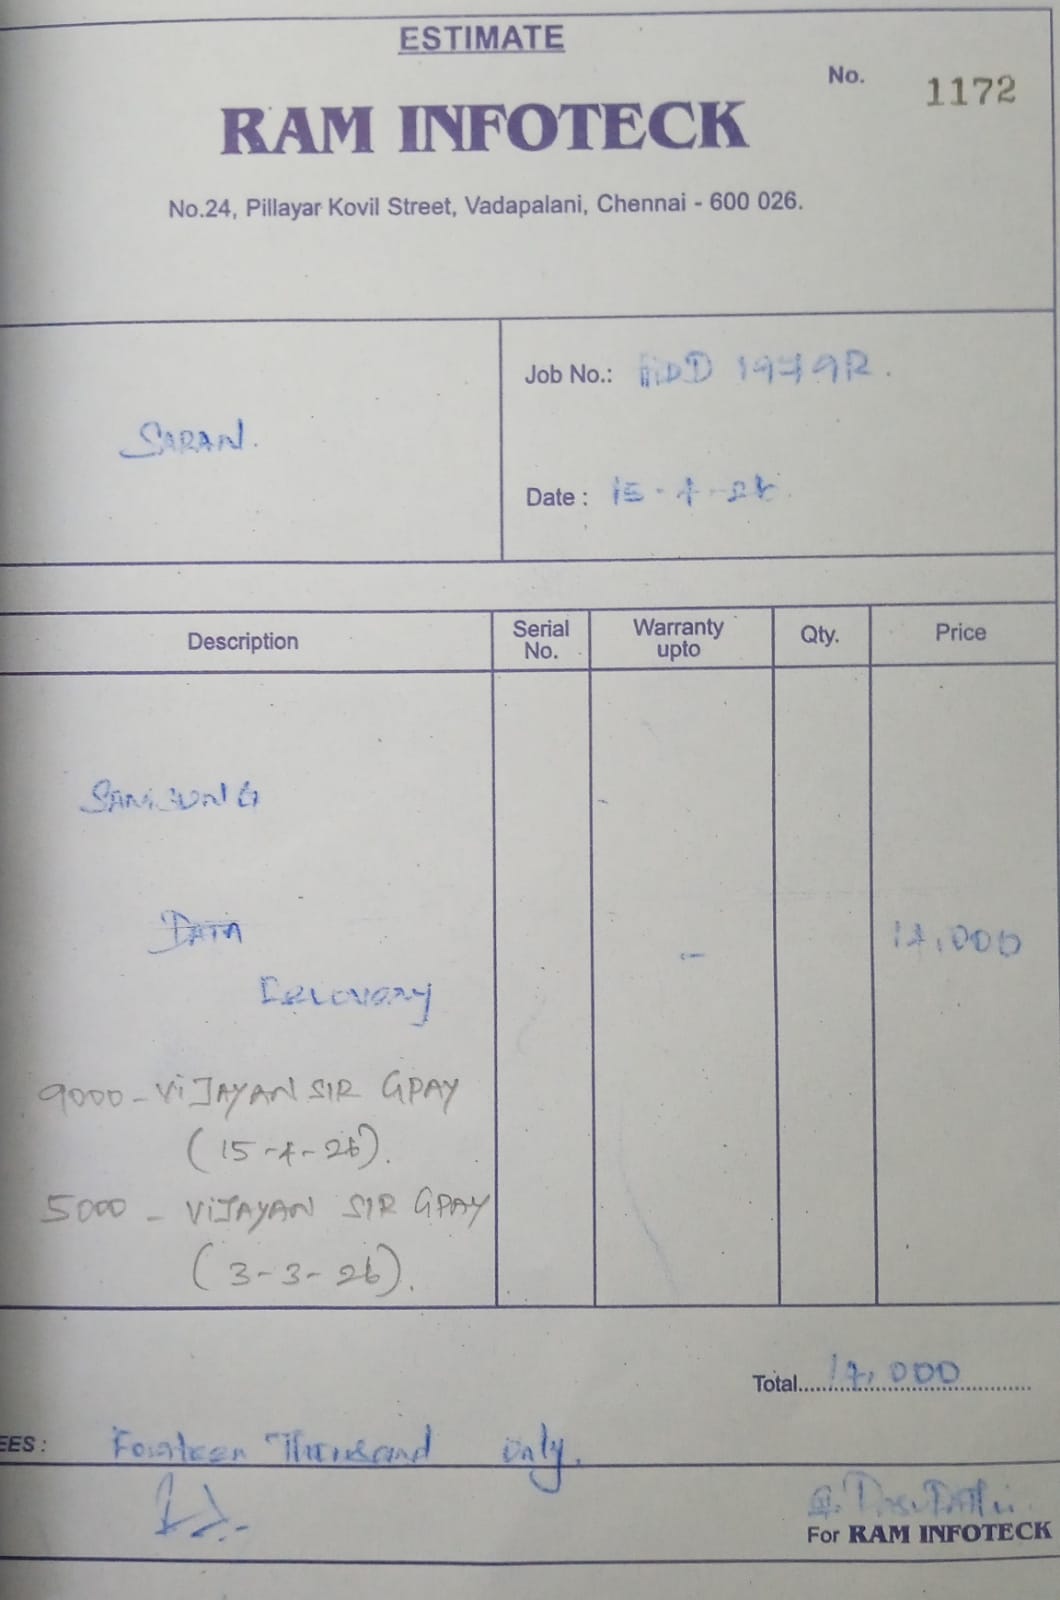 ESTIMATE
No. 1172
RAM INFOTECK
No.24, Pillayar Kovil Street, Vadapalani, Chennai - 600 026.
SARAN.
Job No.: HDD 1979R.
Date : 15-4-26
Description Serial No. Warranty upto Qty. Price
SAMSUNG
DATA - 14,000
Recovery
9000 - VIJAYAN SIR GPAY
(15-4-26).
5000 - VIJAYAN SIR GPAY
(3-3-26).
Total 14,000
EES : Fourteen Thousand only.
For RAM INFOTECK